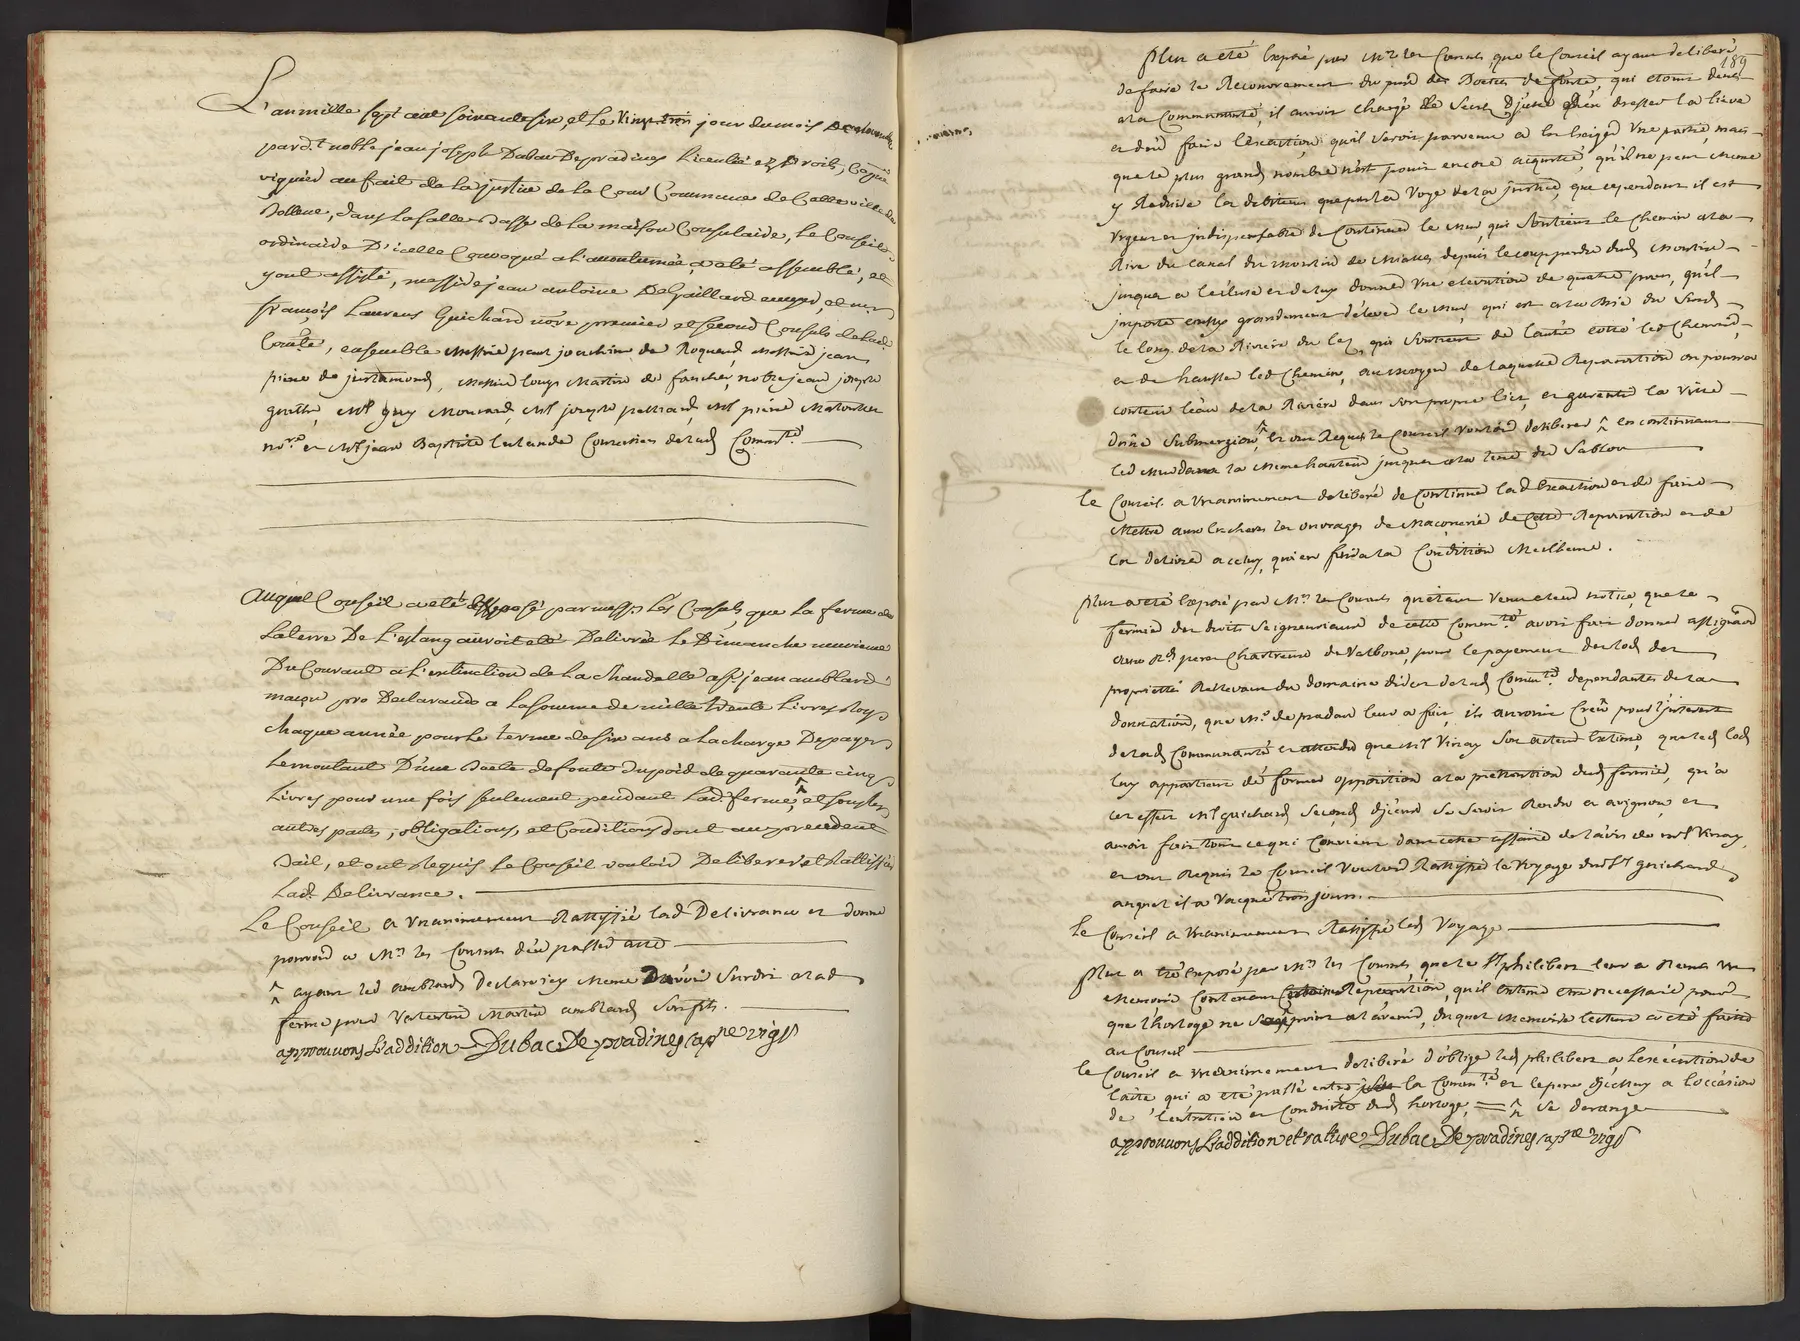 L'an mille sept cent soixante six, et le vingt trois jour du mois
pard.t noble jean joseph Dubac Depradines licentié ez Droits, Capne
viguier au fait de la justice de la Cour Commune de Cette ville de
Bollene, dans la salle Basse de la maison Consulaire, le Conseil
ordinaire D'icelle Convoqué a l'accoutumée, a été assemblé, et
y ont assisté, messire jean antoine DeGaillard ecuyer, et mr
françois Laurens Guichard nore premier et second Consuls de lad.
Comté, ensemble Messire paul joachim de Roquard, Messire jean
pierre de justamond, Messire louys Martin de faucher, noble jean joseph
guilhe, Mr guy Monnard, Mr joseph pellard, Mr pierre
nore et Mr jean Baptiste lalande Conseillers de lad. Commté
Auquel Conseil a été exposé par mess.rs Les Consuls, que La ferme de
La terre De L'estang auroit été Delivrée Le Dimanche neuvieme
Du Courant a l'extinction de la Chandelle a sr jean amblard
maçon pro Declarando a la somme de mille trente Livres Roy
chaque année pour le terme de six ans a la charge De payer
Le montant D'une Boete de fonte du poid de quarante cinq
Livres pour une fois seulement pendant Lad. ferme, ^ et sous les
autres pactes, obligations, et Conditions dont au precedent
Bail, et ont Requis Le Conseil vouloir Deliberer et Rattiffier
Lad. Delivrance.
Le Conseil a Unanimement Rattiffié lad. Delivrance et donné
pouvoir a Mrs les Consuls d'en passer acte
^ ayant led. amblard Declaré icy meme D'avoir Surdit a lad.
ferme pour Valentin Martin amblard Son fils.
approuvons L'addition Dubac De pradines capne vigr
189
Plus a été Exposé par Mrs les Consuls, que le Conseil ayant deliberé
de faire le Recouvrement du prix des Boetes de fonte, qui etoint deues
a la Communauté, il auroit chargé le Second d'iceux d'en dresser la lieve
et d'en faire l'exaction, qu'il seroit parvenu a en Exiger Une partie, mais
que le plus grand nombre n'est point encore acquitté, qu'il ne peut meme
y Reduire les debiteurs que par la Voye de la justice, que cependant il est
Urgent et indispensable de Continuer le mur, qui Soutient le Chemin a la
Rive du Canal du moulin de depuis le coupperdu dud. Moulin
jusques a l'ecluse et de luy donner Une elevation de quatre pans, qu'il
importe aussy grandement d'elever le mur, qui est a la Rive du Nord
le long de la Riviere du lez, qui Soutient de l'autre cotté led. Chemin,
et de hausser led. Chemin, au moyen de laquelle Reparation on pourra
contenir l'eau de la Riviere dans Son propre lict, et garentir la Ville
d'une Submersion, et ont Requis le Conseil Vouloir deliberer ^ En continuant
led. mur dans la Meme hauteur jusques a la terre du Sablon
le Conseil a Unanimement deliberé de Continuer lad. Exaction et de faire
Mettre aux Encheres les ouvrages de Maçonerie de Cette Reparation et de
les delivrer a celuy, qui en faira la Condition Meilleure.
Plus a été Exposé par Mrs les Consuls qu'étant venu a leur notice, que le
fermier des droits Seigneuriaux de cette Commté avoit fait donner assignaõn
aux Rds peres Chartreux de Valbone, pour le payement des lods des
proprietés Relevant du domaine direct de lad. Commté dependantes de la
donnation, que Mr de pradau leur a fait, ils auroint Creu pour l'jnterest
de lad. Communauté et attendu que Mr Vinay Son acteur Estime, que led. lods
luy appartient de former opposition a la prettention dud. fermier, qu'a
cet effet Mr guichard Second d'iceux Se Seroit Rendu en avignon, et
auroit fait tout ce qui Convient dans cette affaire de l'avis de mr Vinay,
et ont Requis le Conseil Vouloir Rattiffier le Voyage dud. Sr guichard
auquel il a Vacqué trois jours.
Le Conseil a Unanimement Rattiffié led. Voyage
Plus a été Exposé, par Mrs les Consuls que le Sr philibert leur a Remis Un
Memoire Contenant Reparation, qu'il Estime etre necessaire pour
que l'horloge ne ^ point a l'avenir, duquel Memoire lecture a été faitte
au Conseil
le Conseil a Unanimement deliberé d'obliger led. philibert a l'execution de
l'acte qui a été passé entre la Commté et le pere d'icelluy a l'occasion
de l'entretien et Conduite dud. horloge, = ^ se derange
approuvons L'addition et rature Dubac De pradines capne vigr